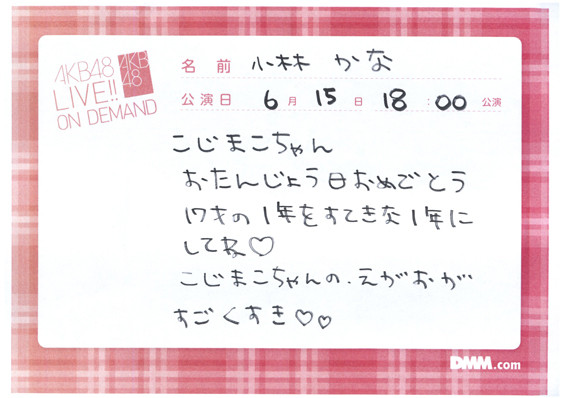 AKB48
LIVE!!
ON DEMAND
AKB
48
名前 小林 かな
公演日 6月 15日 18:00 公演
こじまこちゃん
おたんじょう日おめでとう
17才の1年をすてきな1年に
してね♡
こじまこちゃんの.えがおが
すごくすき♡♡
DMM.com